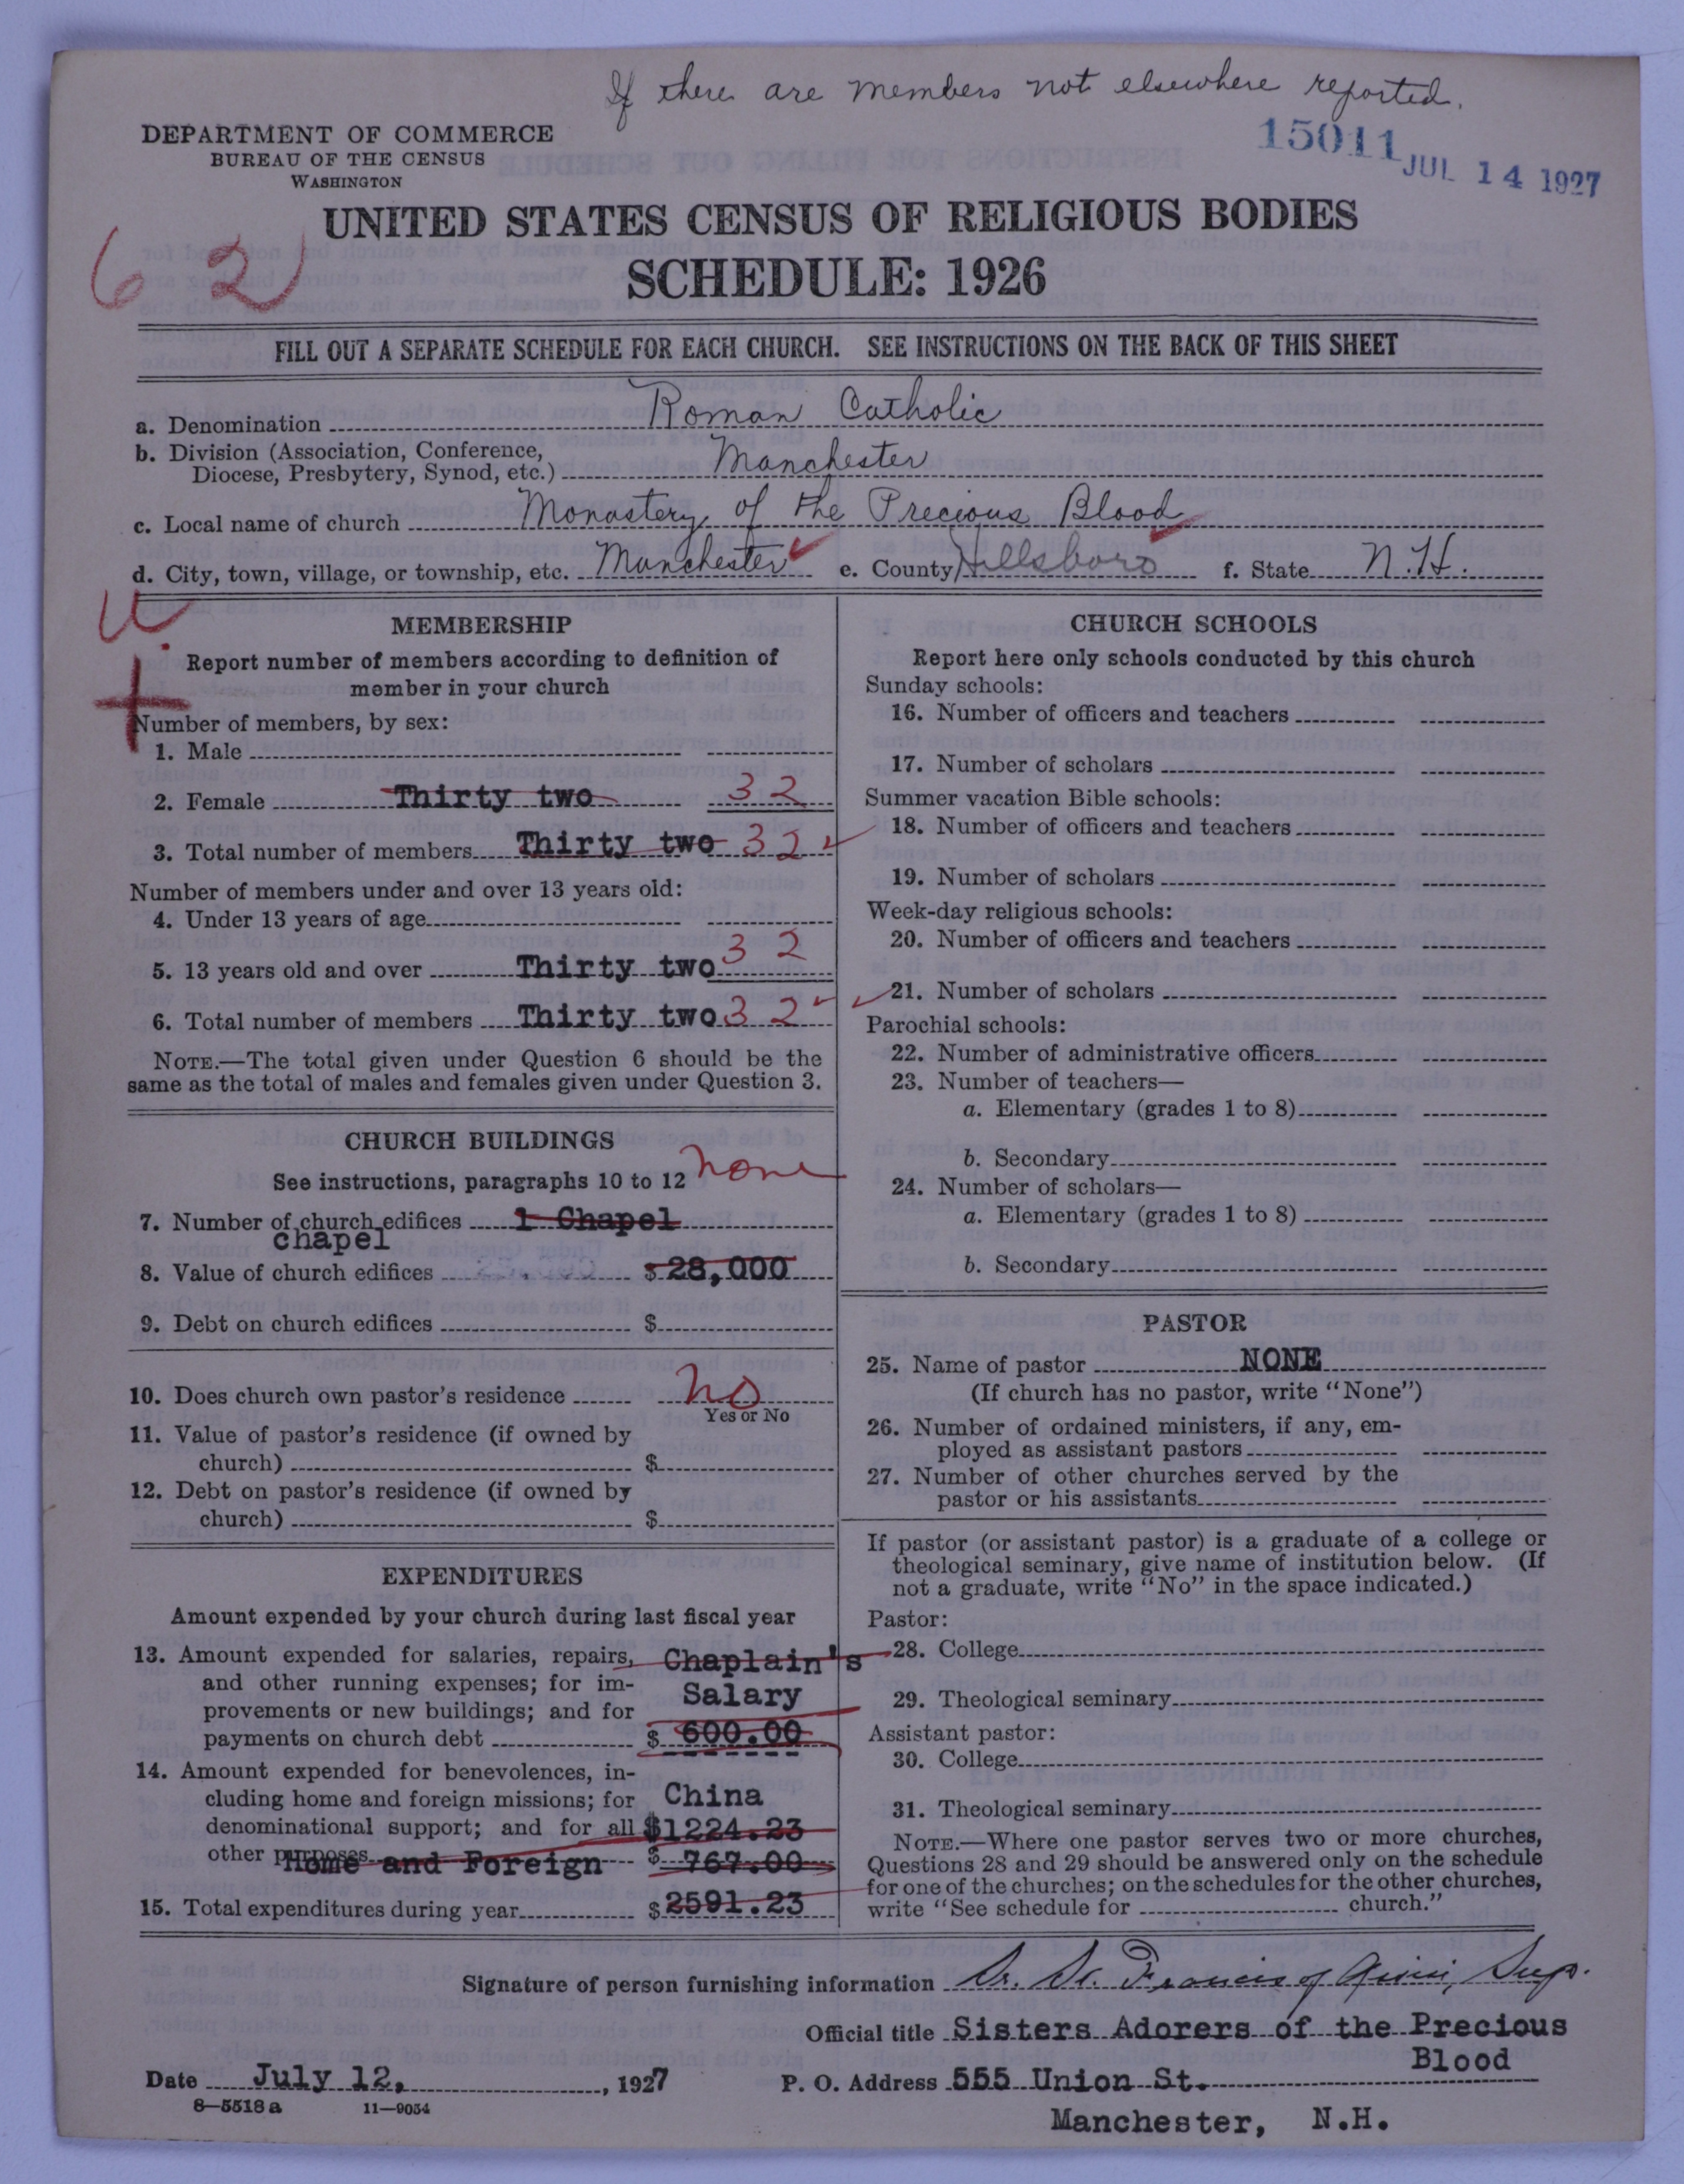 If there are members not elsewhere reported.
DEPARTMENT OF COMMERCE
BUREAU OF THE CENSUS
WASHINGTON
15011 JUL 14 1927
UNITED STATES CENSUS OF RELIGIOUS BODIES
62
SCHEDULE: 1926
FILL OUT A SEPARATE SCHEDULE FOR EACH CHURCH. SEE INSTRUCTIONS ON THE BACK OF THIS SHEET
a. Denomination Roman Catholic
b. Division (Association, Conference,
Diocese, Presbytery, Synod, etc.) Manchester
c. Local name of church Monastery of the Precious Blood
d. City, town, village, or township, etc. Manchester e. County Hillsboro f. State N.H.
U
MEMBERSHIP
Report number of members according to definition of
member in your church
Number of members, by sex:
1. Male
2. Female Thirty two 32
3. Total number of members Thirty two 32
Number of members under and over 13 years old:
4. Under 13 years of age
5. 13 years old and over Thirty two 32
6. Total number of members Thirty two 32
NOTE.—The total given under Question 6 should be the
same as the total of males and females given under Question 3.
CHURCH BUILDINGS
See instructions, paragraphs 10 to 12 none
7. Number of church edifices 1 Chapel
chapel
8. Value of church edifices $28,000
9. Debt on church edifices $
10. Does church own pastor's residence no
Yes or No
11. Value of pastor's residence (if owned by
church) $
12. Debt on pastor's residence (if owned by
church) $
EXPENDITURES
Amount expended by your church during last fiscal year
13. Amount expended for salaries, repairs, Chaplain's
and other running expenses; for im- Salary
provements or new buildings; and for
payments on church debt $ 600.00
14. Amount expended for benevolences, in-
cluding home and foreign missions; for China
denominational support; and for all $1224.23
other purposes Home and Foreign $ 767.00
15. Total expenditures during year $2591.23
CHURCH SCHOOLS
Report here only schools conducted by this church
Sunday schools:
16. Number of officers and teachers
17. Number of scholars
Summer vacation Bible schools:
18. Number of officers and teachers
19. Number of scholars
Week-day religious schools:
20. Number of officers and teachers
21. Number of scholars
Parochial schools:
22. Number of administrative officers
23. Number of teachers—
a. Elementary (grades 1 to 8)
b. Secondary
24. Number of scholars—
a. Elementary (grades 1 to 8)
b. Secondary
PASTOR
25. Name of pastor NONE
(If church has no pastor, write "None")
26. Number of ordained ministers, if any, em-
ployed as assistant pastors
27. Number of other churches served by the
pastor or his assistants
If pastor (or assistant pastor) is a graduate of a college or
theological seminary, give name of institution below. (If
not a graduate, write "No" in the space indicated.)
Pastor:
28. College
29. Theological seminary
Assistant pastor:
30. College
31. Theological seminary
NOTE.—Where one pastor serves two or more churches,
Questions 28 and 29 should be answered only on the schedule
for one of the churches; on the schedules for the other churches,
write "See schedule for church."
Signature of person furnishing information Sr. St. Francis of Assisi, Sup.
Official title Sisters Adorers of the Precious
Blood
Date July 12, 1927 P. O. Address 555 Union St.
8—5518a 11—9054
Manchester, N.H.